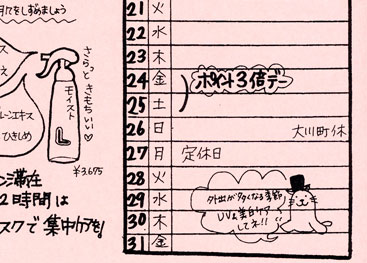 月てをしずめましょう
さらっと
きもちいい♡
モイスト
L
¥3.675
ひきしめ
滞在
2時間は
スクで集中ケアを!
21 火
22 水
23 木
24 金
25 土
ポイント3倍デー
26 日 大川町休
27 月 定休日
28 火
29 水
30 木
31 金
外出が多くなる季節
UV&美白ケア
してネ!!